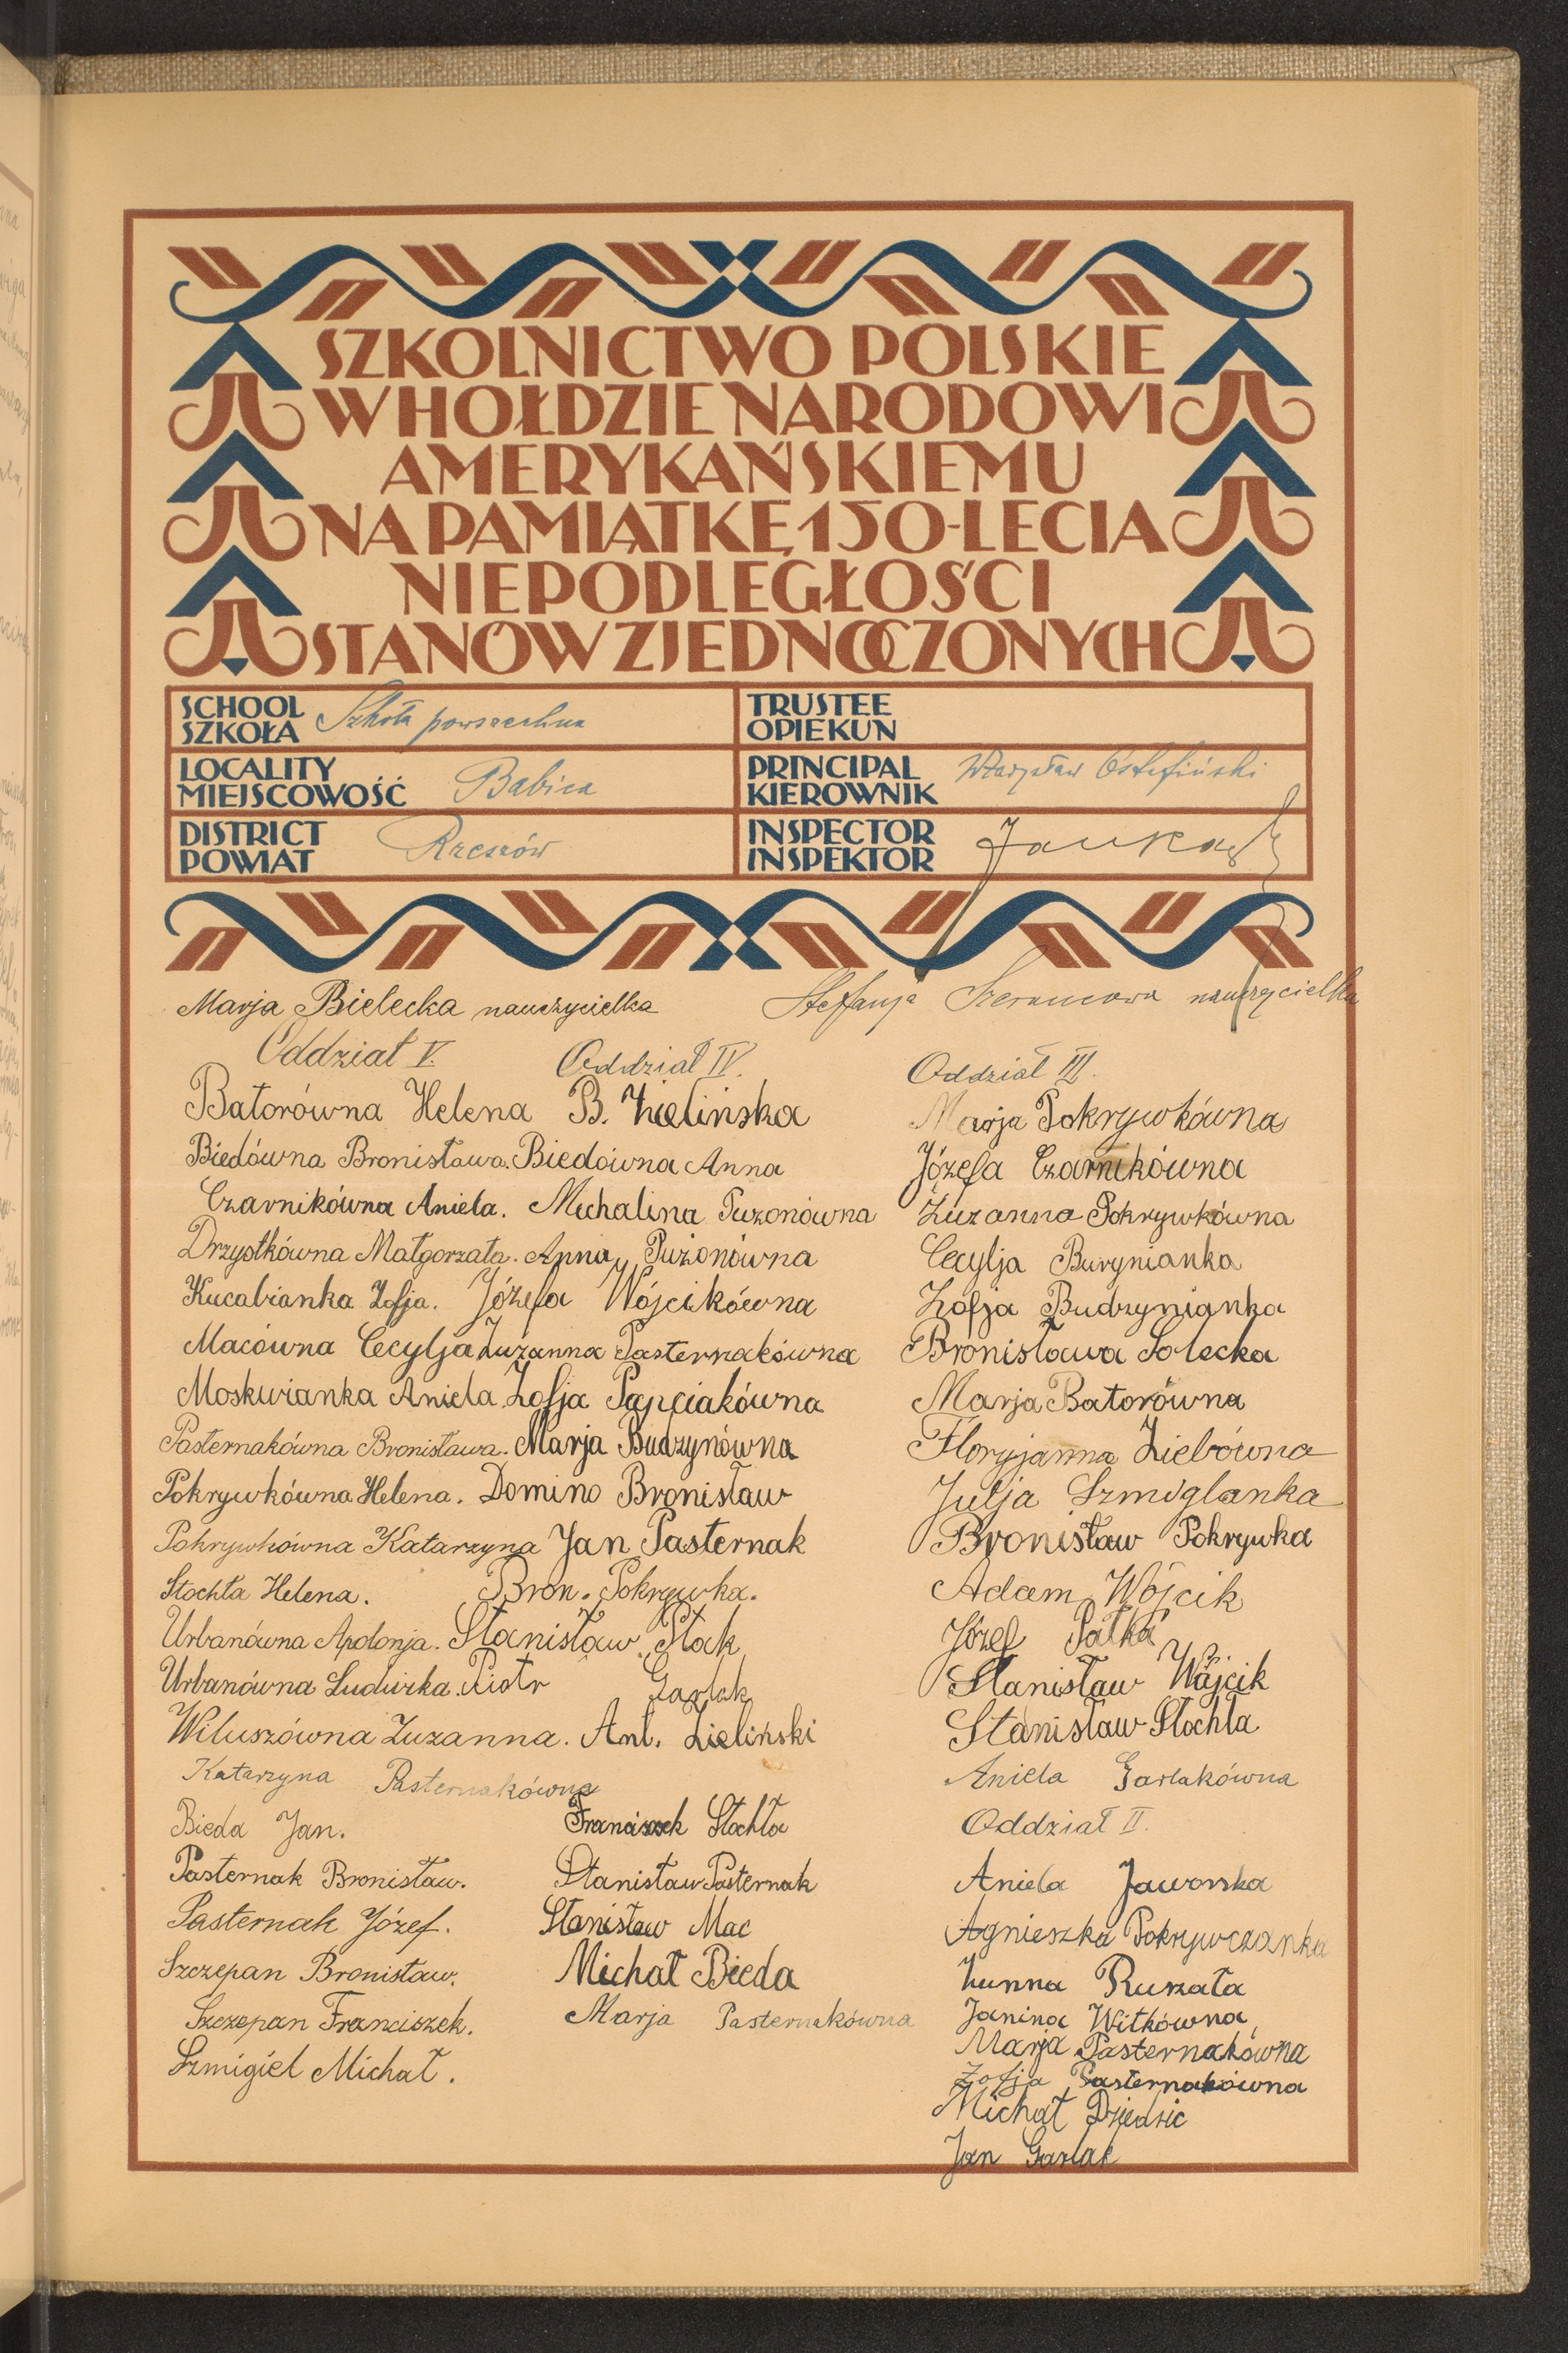 SZKOLNICTWO POLSKIE
W HOŁDZIE NARODOWI
AMERYKAŃSKIEMU
NA PAMIĄTKĘ 150-LECIA
NIEPODLEGŁOŚCI
STANÓW ZJEDNOCZONYCH
SCHOOL
SZKOŁA Szkoła powszechna
LOCALITY
MIEJSCOWOŚĆ Babica
DISTRICT
POWIAT Rzeszów
TRUSTEE
OPIEKUN
PRINCIPAL
KIEROWNIK Władysław Ostafiński
INSPECTOR
INSPEKTOR
Marja Bielecka nauczycielka
Stefanja nauczycielka
Oddział V.
Batorówna Helena
Biedówna Bronisława.
Czarnikówna Aniela.
Drzystkówna Małgorzata.
Kucabianka Zofja.
Macówna Cecylja
Moskwianka Aniela
Pasternakówna Bronisława.
Pokrywkówna Helena.
Pokrywkówna Katarzyna
Stochła Helena.
Urbanówna Apolonja.
Urbanówna Ludwika.
Wiluszówna Zuzanna.
Katarzyna Pasternakówna
Bieda Jan.
Pasternak Bronisław.
Pasternak Józef.
Szczepan Bronisław.
Szczepan Franciszek.
Szmigiel Michał.
Oddział IV.
B. Zielińska
Biedówna Anna
Michalina Puzonówna
Anna Puzonówna
Józefa Wójcikówna
Zuzanna Pasternakówna
Zofja Papciakówna
Marja Budzynówna
Domino Bronisław
Jan Pasternak
Bron. Pokrywka.
Stanisław Ptak
Piotr Garlak
Ant. Zieliński
Franciszek Stochła
Stanisław Pasternak
Stanisław Mac
Michał Bieda
Marja Pasternakówna
Oddział III.
Marja Pokrywkówna
Józefa Czarnikówna
Zuzanna Pokrywkówna
Cecylja Burynianka
Zofja Budzynianka
Bronisława Solecka
Marja Batorówna
Floryjanna Ziebówna
Julja Szmiglanka
Bronisław Pokrywka
Adam Wójcik
Józef Pałka
Stanisław Wójcik
Stanisław Stochła
Aniela Garlakówna
Oddział II.
Aniela Jaworska
Agnieszka Pokrywczanka
Zunna Ruszała
Janina Witkówna
Marja Pasternakówna
Zofja Pasternakówna
Michał Dziedzic
Jan Garlak